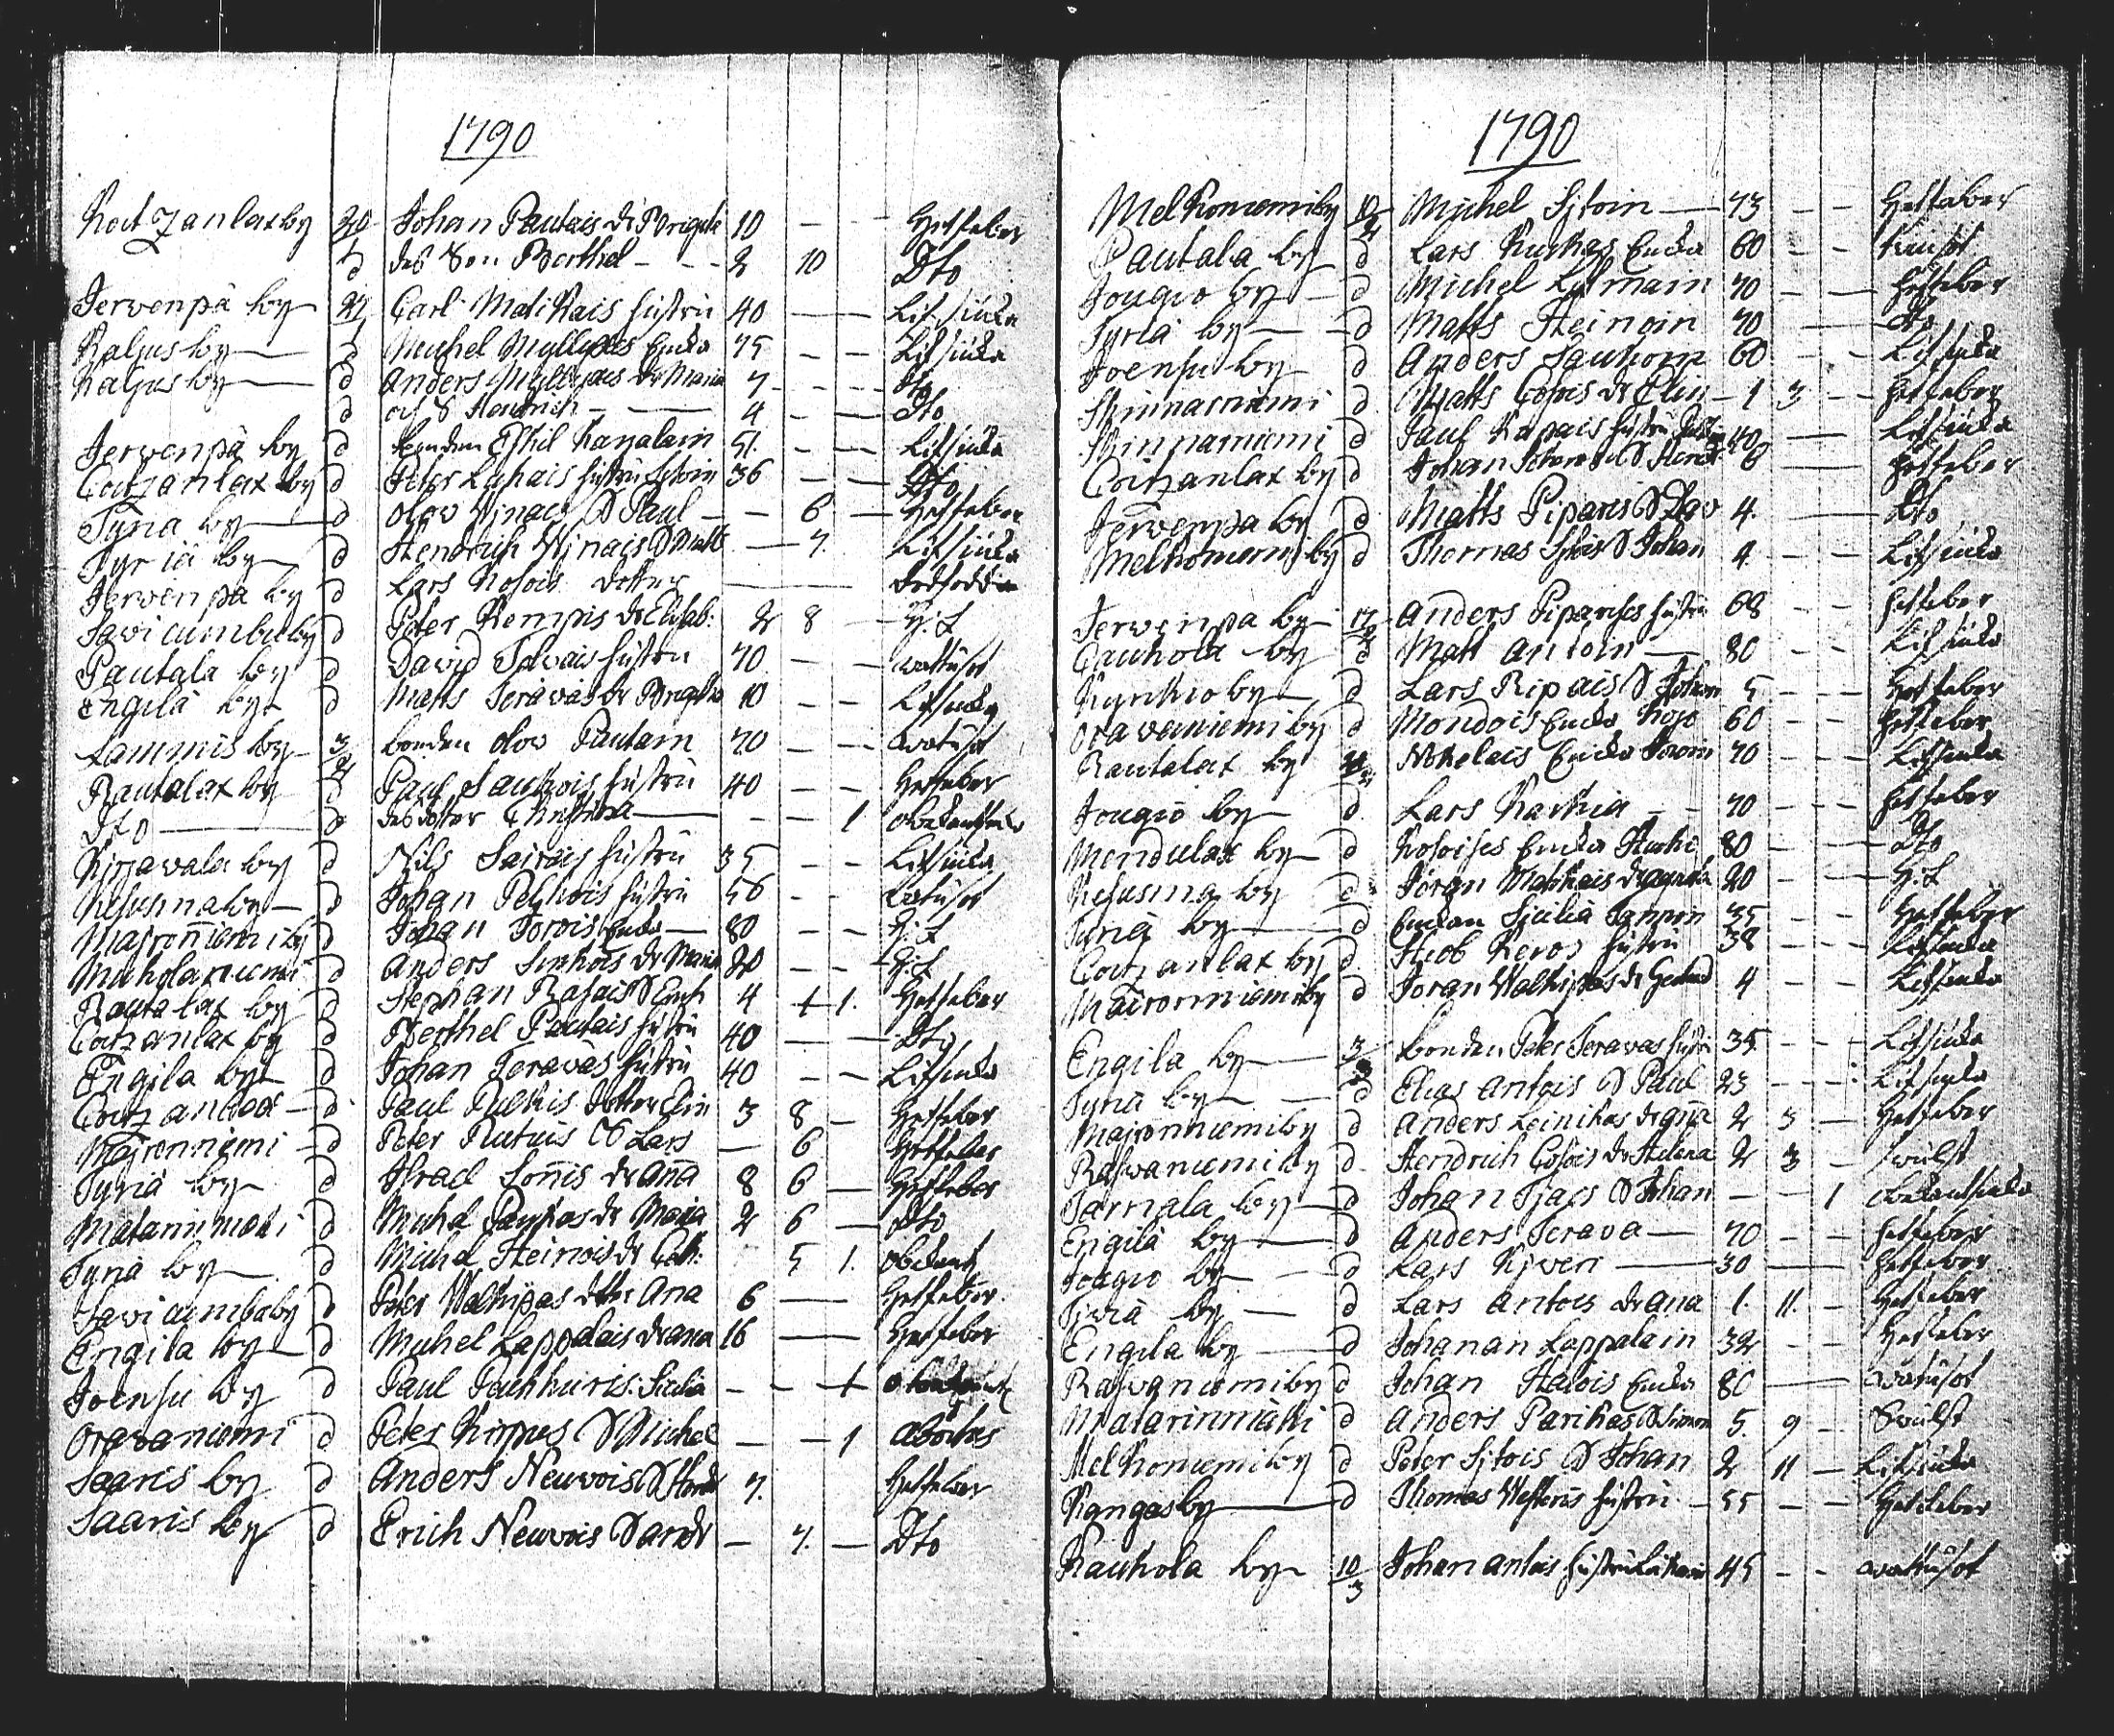 1790
Koitzanlax by 20/1 Johan Pautais dr Brigita 10 - - Hetfeber
d des Son Berthel - - - 2 10 Dto
Jervenpä by 27/1 Carl Matikais hustru 40 - - Lifsiuka
Kaljus by d Michel Myllyses Encka 75 - - Lifsiuka
Kaljus by d Anders Myllyses dr Maria 7 - - - Dto
d och S Hendrich - 4 - - Dto
Jerwenpä by d bonden Eskil Karjalain 51. - - Lifsiuka
Coitzanlax by d Peter hustru 36 - - Dto
Tyriä by d Olov S Paul - - 6 - Hetfeber
Tyriä by d Hendrich S Matts - 7. Lifsiuka
Jerwenpä by d Lars Kosois dotter - dödfödd
Savicumbu by d Peter Kempis dr Elisab: 2 8 - H: f
Pautala by d David Telvais hustru 70 - - wattusot
Engilä by d Matts Teräväs dr Brigita 10 - - Lifsiuka
Lammis by 3/2 bonden Olov Pautain 70 - - watusot
Rautalax by d Paul Saukois hustru 40 - - Hetfeber
Dto d des dotter Christina - - - 1 obekant
Kirjavala by d Nils Sairais hustru 35 - - Lifsiuka
Kesusma by d Johan Pelkois hustru 56 - - watusot
Maironniemi by d Johan Torvois Encka 80 - - H: f
Mickolaniemi d Anders Sinkois dr Maria 20 - - H: f
Rautalax by d Stephan Rasais S Erich 4 + 1. Hetfeber
Coitzanlax by d Berthel Pautais hustru 40 - - Dto
Engila by d Johan Teravas hustru 40 - - Lifsiuka
Coitzanlax d Paul Pulkis dotter Elin 3 8 - Hetfeber
Maironniemi d Peter Rutuis S Lars - 6 Hetfeber
Tyriä by d Israel Sonnis dr Anna 8 6 - Hetfeber
Matarinmäki d Michel Parikas dr Maria 2 6 - Dto
Tyriä by d Michel Heinois dr Cath: 5 1. Obekant
Savicumbu by d Peter Walkipas dotter Ana 6 - - Hetfeber
Engila by d Michel Lappalais dr Ana 16 - - Hetfeber
Joensu by d Paul - - 1
Oravaniemi d Peter Kirpus S Michel - - 1
Saaris by d Anders Neuvois S Hend 7. Hetfeber
Saaris by d Erich Neuvois S And - 7. - Dto
1790
Melkoniemi by 10/2 Michel Sitoin 73 - - Hetfeber
Pautala by d Lars Kurkas Encka 60 - -
Jougio by d Michel 70 - - Hetfeber
Tyriä by d Matts Heinoin 70 - - Dto
Joensu by d Anders Saukoin 60 - - Lifsiuka
Skinnarniemi d Matts Cosois dr Elin 1 3 - Hetfeber
Skinnarniemi d Paul Kapais hustru 40 - Lifsiuka
Coitzanlax by d Johan S Hend 6 - Hetfeber
Jerwenpä by d Matts Piparis S Dav 4. - Dto
Melkoniemi by d Thomas Sitois S Johan 4. - Lifsiuka
Jerwenpa by 17/2 Anders Piparises hustru 68 - - Hetfeber
Caukola by d Matt Antoin 80 - - Lifsiuka
Kyntkio by d Lars Ripais S Johan 5 - - Hetfeber
Oravaniemi by d Mondois Encka 60 - - Hetfeber
Rautalax by Nokelais Encka 70 - - Lifsiuka
Jougio by d Lars Karkia - - 70 - - - Hetfeber
Mendulax by d Kosoises Encka 80 - - - Dto
Kesusma by d Jöran Matikais dr 20 - - H: f
Tyriä by d Enckan Sicilia 35 - - Hetfeber
Coitzanlax by d Jacob Keros hustru 38 - - Lifsiuka
Maironniemi by d Joran Walkipas dr Gertrud 4 - - Lifsiuka
Engila by 3/3 bonden Peter Teravas hustru 35 - - - Lifsiuka
Tyriä by d Elias Antois S Paul 23 - - Lifsiuka
Maironniemi by d Anders Leinikas dr Anna 2 3 - Hetfeber
Raswaniemi by d Hendrich Cosois dr Helena 2 3 - swulst
Tarnala by d Johan S Johan - - 1
Engilä by d Anders Terava 70 - - Hetfeber
Jougio by d Lars 30 - Hetfeber
Tyriä by d Lars Antois dr Ana 1. 11. - Hetfeber
Engila by d Johanan Lappalain 32 - - Hetfeber
Raswaniemi by d Johan Halois Encka 80 - - watusot
Matarinmäki d Anders Parikas S Simon 5. 9 - Swulst
Melkoniemi by d Peter Sitois S Johan 2 11 - Lifsiuka
Kangas by d Thomas hustru 55 - - Hetfeber
Kaukola by 10/3 Johan Antois hustru 45 - - wattusot